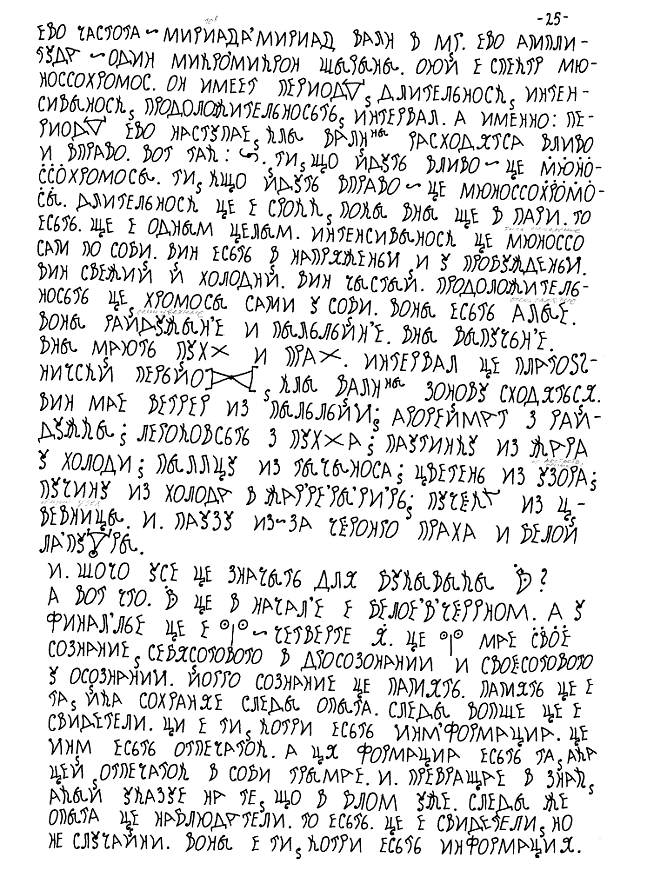 -25-
ЕВО ЧАСТОТА ~ МИРИАДА МИРИАД ВАЛН В МГ. ЕВО АМПЛИ-
ТУДА ~ ОДИН МИКРОМИКРОН ШЫРЫНЫ. ОЮЙ Е СПЕКТР МЮ-
НОССОХРОМОС. ОН ИМЕЕТ ПЕРИОД, ДЛИТЕЛЬНОСК, ИНТЕН-
СИВЫНОСК, ПРОДОЛОЖИТЕЛЬНОСЬТЬ, ИНТЕРВАЛ. А ИМЕННО: ПЕ-
РИОД ЕВО НАСТУПАЕ, КЛЫ ВАЛНны РАСХОДЯТСА ВЛИВО
И ВПРАВО. ВОТ ТАК: . ТИ, ЩО ЙДУТЬ ВЛИВО ~ ЦЕ МЮНО-
ССОХРОМОСЫ. ТИ, КЩО ЙДУТЬ ВПРАВО ~ ЦЕ МЮНОССОХРОМО-
СЫ. ДЛИТЕЛЬНОСК ЦЕ Е СРОКК, ПОКЫ ВНЫ ЩЕ В ПАРИ. ТО
ЕСЬТЬ. ЩЕ Е ОДНЫМ ЦЕЛЫМ. ИНТЕНСИВЫНОСК ЦЕ МЮНОССО
САМ ПО СОБИ. ВИН ЕСЬТЬ В НАПРЯЖЕНЬИ, И У ПРОБУЖДЕНЬИ.
ВИН СВЕЖИЙ Й ХОЛОДНИЙ. ВИН ЧЫСТЫЙ. ПРОДОЛОЖИТЕЛЬ-
НОСЬТЬ ЦЕ ХРОМОСЫ САМИ У СОБИ. ВОНЫ ЕСЬТЬ АЛЫЕ.
ВОНЫ РАЙДУЖЫН'Е И ПЫЛЬЛЬЙН'Е. ВНЫ ВЫПУЧЫН'Е.
ВНЫ МАЮТЬ ПУХ И ПРАХ. ИНТЕРВАЛ ЦЕ
НИЧСКЙ ПЕРЬЙОД, КЛЫ ВАЛНны ЗОНОВУ СХОДЯТЬСЯ.
ВИН МАЕ ВЕТРЕР ИЗ ПЫЛЬЛЬЙИ; АРОРЕЙМАТ З РАЙ-
ДУЖКЫ; ЛЕРОКОВСЬТЬ З ПУХХА; ПАУТИНКУ ИЗ ЖАРА
У ХОЛОДИ; ПЫЛЛЦУ ИЗ ТЫЧЫНОСА; ЦВЕТЕНЬ ИЗ УЗОРА;
ПУЧИНУ ИЗ ХОЛОДА В ЖАРРЕРЫРИРЬ; ПУЧЕК ИЗ Ц-
ВЕВНИЦЫ. И. ПАУЗУ ИЗ~ЗА ЧЕРОНГО ПРАХА И БЕЛОЙ
ЛАПУРЫ.
И. ШОЧО УСЕ ЦЕ ЗНАЧЫТЬ ДЛЯ БУКЫВЫКЫ В?
А ВОТ ЧТО. В ЦЕ В НАЧАЛ'Е Е БЕЛОЕ В ЧЕРРНОМ. А У
ФИНАЛ'ЛЬЕ ЦЕ Е ~ ЧЕТВЕРТЕ Я. ЦЕ МАЕ СВОЁ
СОЗНАНИЕ, СЕБЯСОТОВОТО В ДТОСОЗОНАНИИ И СВОЕСОТОВОТО
У ОСОЗНАНИИ. ЙОГГО СОЗНАНИЕ ЦЕ ПАМИЯТЬ. ПАМИЯТЬ ЦЕ Е
ТА, ЙКА СОХРАНЯЕ СЛЕДЫ ОПЫТА. СЛЕДЫ ВОПШЕ ЦЕ Е
СВИДЕТЕЛИ. ЦИ Е ТИ, КОТРИ ЕСЬТЬ ИНМ'ФОРМАЦИА. ЦЕ
ИНМ ЕСЬТЬ ОТПЕЧАТОК. А ЦЯ ФОРМАЦИА ЕСЬТЬ ТА, АКА
ЦЕЙ ОТПЕЧАТОК В СОБИ ТРЫМАЕ. И. ПРЕВРАЩАЕ В ЗНАК,
АКЫЙ УКАЗУЕ НА ТЕ, ЩО В БЛОМ УЖЕ. СЛЕДЫ ЖЕ
ОПЫТА ЦЕ НАБЛЮДАТЕЛИ. ТО ЕСЬТЬ. ЦЕ Е СВИДЕТЕЛИ, НО
НЕ СЛУЧАЙНИ. ВОНЫ Е ТИ, КОТРИ ЕСЬТЬ ИНФОРМАЦИЯ.